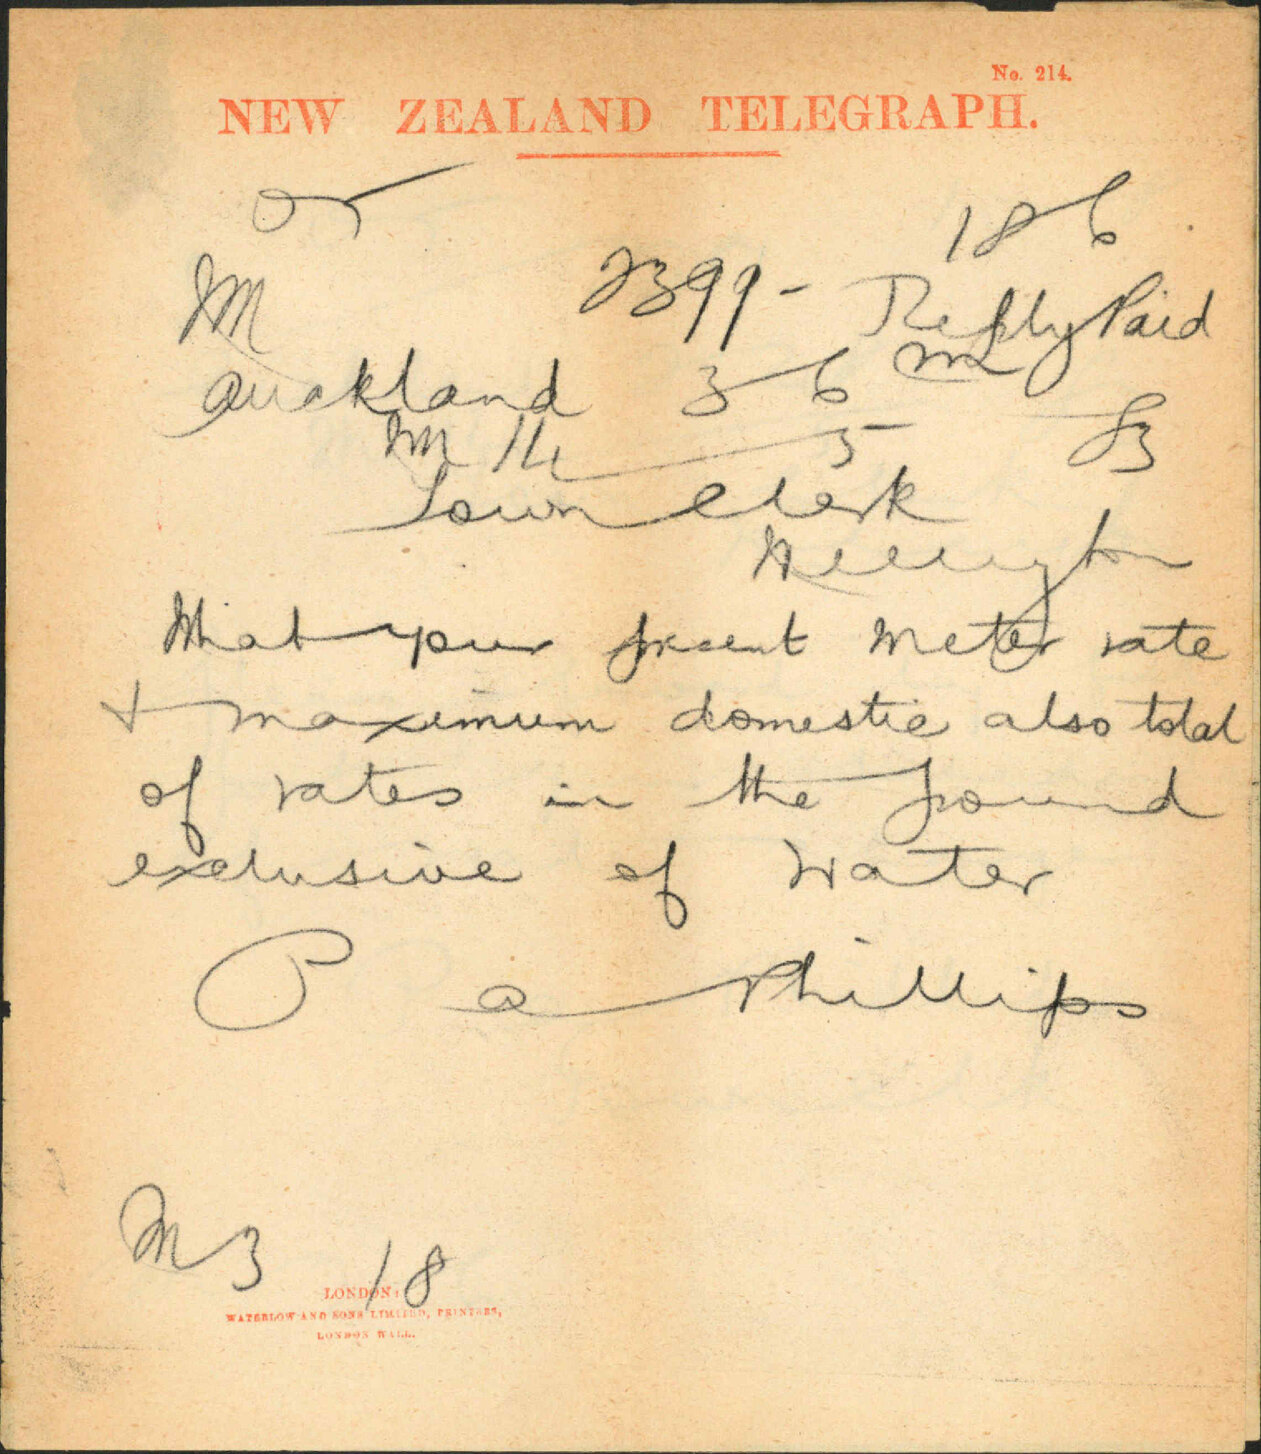 No. 214.
NEW ZEALAND TELEGRAPH.
18 6
M 2399 - Reply Paid
Auckland 3 6
5 83
Town Clerk
Wellington
What your present Meter rate
& maximum domestic also total
of rates in the pound
exclusive of water
P a Phillips
M 3 18
LONDON:
WATERLOW AND SONS LIMITED, PRINTERS,
LONDON WALL.